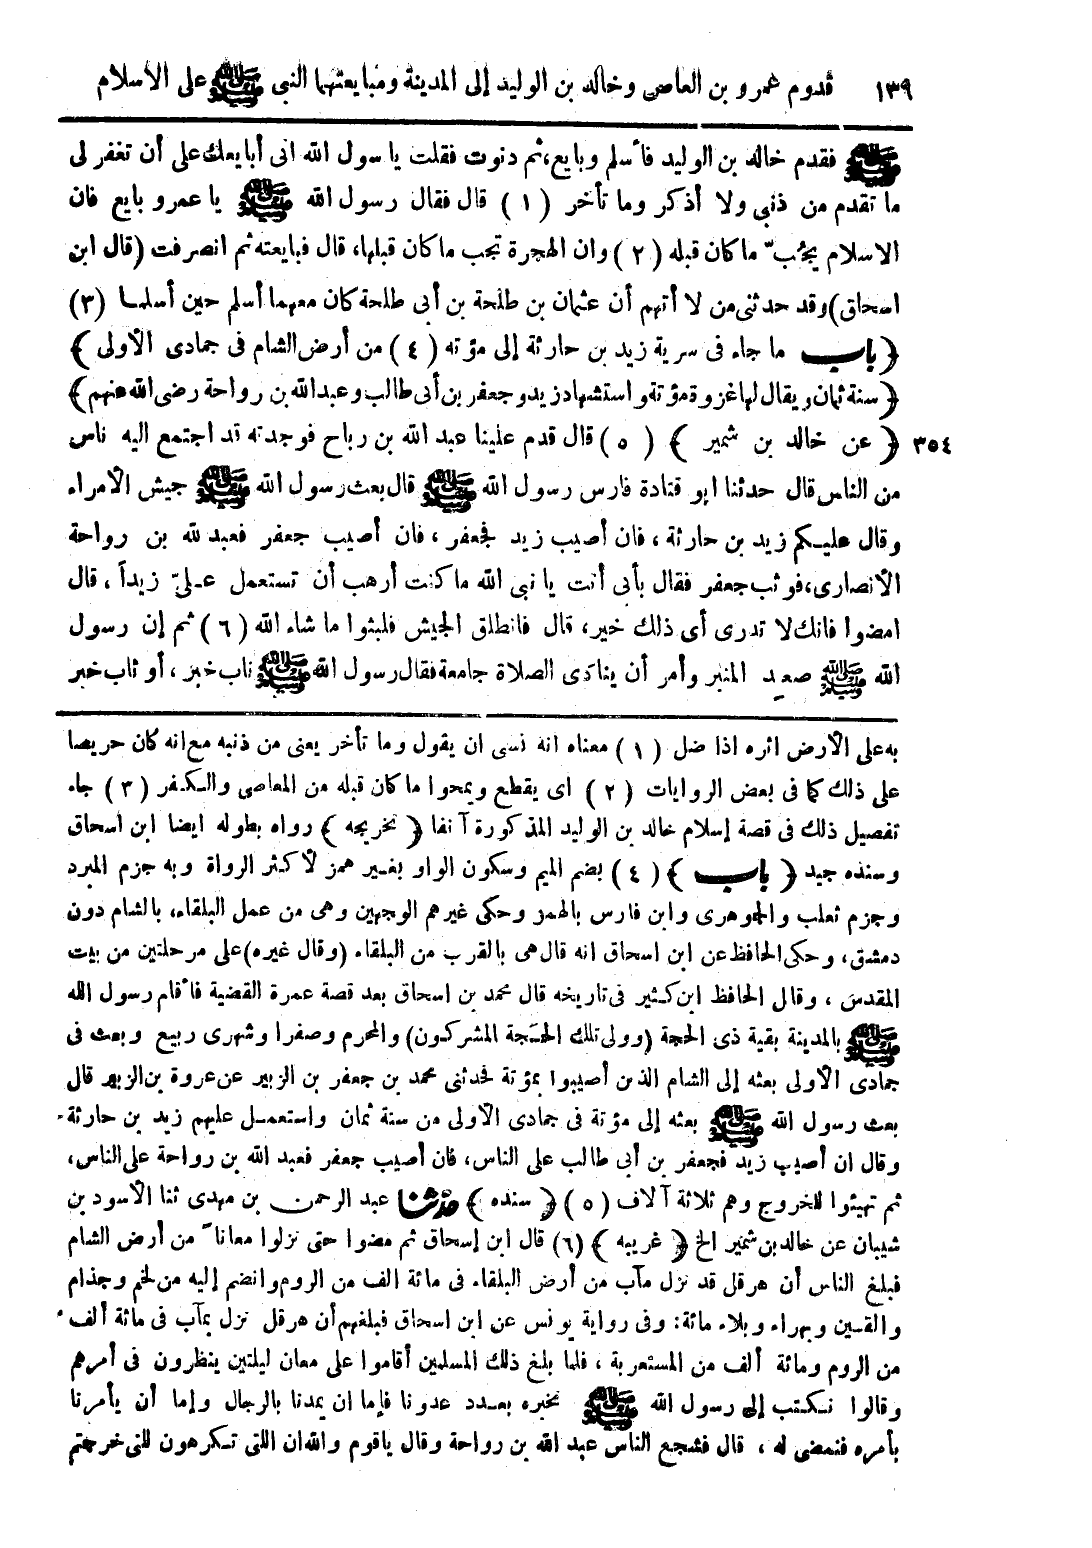 ١٣٩ قدوم عمرو بن العاص وخالد بن الوليد إلى المدينة ومبايعتهما النبي ﷺ على الاسلام
ﷺ فقدم خالد بن الوليد فأسلم وبايع، ثم دنوت فقلت يا رسول الله انى أبايعك على أن تغفر لى
ما تقدم من ذنبي ولا أذكر وما تأخر (١) قال فقال رسول الله ﷺ يا عمرو بايع فان
الاسلام يجُبّ ما كان قبله (٢) وان الهجرة تجب ما كان قبلها، قال فبايعته ثم انصرفت (قال ابن
اسحاق) وقد حدثنى من لا أتهم أن عثمان بن طلحة بن أبى طلحة كان معهما أسلم حين أسلما (٣)
﴿باب ما جاء فى سرية زيد بن حارثة إلى مؤتة (٤) من أرض الشام فى جمادى الأولى﴾
﴿سنة ثمان ويقال لها غزوة مؤتة واستشهاد زيد وجعفر بن أبى طالب وعبد الله بن رواحة رضى الله عنهم﴾
٣٥٤ ﴿عن خالد بن شمير﴾ (٥) قال قدم علينا عبد الله بن رباح فوجدته قد اجتمع اليه ناس
من الناس قال حدثنا ابو قتادة فارس رسول الله ﷺ قال بعث رسول الله ﷺ جيش الأمراء
وقال عليكم زيد بن حارثة، فان أصيب زيد فجعفر، فان أصيب جعفر فعبد لله بن رواحة
الأنصارى، فوثب جعفر فقال بأبى أنت يا نبى الله ما كنت أرهب أن تستعمل علىّ زيداً، قال
امضوا فانك لا تدرى أى ذلك خير، قال فانطلق الجيش فلبثوا ما شاء الله (٦) ثم إن رسول
الله ﷺ صعد المنبر وأمر أن ينادى الصلاة جامعة فقال رسول الله ﷺ ناب خبر، أو ثاب خبر
به على الأرض اثره اذا ضل (١) معناه انه نسى ان يقول وما تأخر يعنى من ذنبه مع انه كان حريصا
على ذلك كما فى بعض الروايات (٢) اى يقطع ويمحوا ما كان قبله من المعاصى والكفر (٣) جاء
تفصيل ذلك فى قصة إسلام خالد بن الوليد المذكورة آنفا ﴿تخريجه﴾ رواه بطوله ايضا ابن اسحاق
وسنده جيد ﴿باب﴾ (٤) بضم الميم وسكون الواو بغير همز لأكثر الرواة وبه جزم المبرد
وجزم ثعلب والجوهرى وابن فارس بالهمز وحكى غيرهم الوجهين وهى من عمل البلقاء، بالشام دون
دمشق، وحكى الحافظ عن ابن اسحاق انه قال هى بالقرب من البلقاء (وقال غيره) على مرحلتين من بيت
المقدس، وقال الحافظ ابن كثير فى تاريخه قال محمد بن اسحاق بعد قصة عمرة القضية فأقام رسول الله
ﷺ بالمدينة بقية ذى الحجة (وولى تلك الحجة المشركون) والمحرم وصفرا وشهرى ربيع وبعث فى
جمادى الأولى بعثه إلى الشام الذين أصيبوا بمؤتة فحدثنى محمد بن جعفر بن الزبير عن عروة بن الزبير قال
بعث رسول الله ﷺ بعثه إلى مؤتة فى جمادى الأولى من سنة ثمان واستعمل عليهم زيد بن حارثة
وقال ان أصيب زيد فجعفر بن أبى طالب على الناس، فان أصيب جعفر فعبد الله بن رواحة على الناس،
ثم تهيئوا للخروج وهم ثلاثة آلاف (٥) ﴿سنده﴾ حدثنا عبد الرحمن بن مهدى ثنا الأسود بن
شيبان عن خالد بن شمير الخ ﴿غريبه﴾ (٦) قال ابن إسحاق ثم مضوا حتى نزلوا معاناً من أرض الشام
فبلغ الناس أن هرقل قد نزل مآب من أرض البلقاء فى مائة الف من الروم وانضم إليه من لخم وجذام
والقين وبهراء وبلاء مائة: وفى رواية يونس عن ابن اسحاق فبلغهم أن هرقل نزل بمآب فى مائة ألف
من الروم ومائة ألف من المستعربة، فلما بلغ ذلك المسلمين أقاموا على معان ليلتين ينظرون فى أمرهم
وقالوا نكتب إلى رسول الله ﷺ نخبره بعدد عدونا فإما ان يمدنا بالرجال وإما أن يأمرنا
بأمره فنمضى له، قال فشجع الناس عبد الله بن رواحة وقال ياقوم والله ان التى تكرهون للتى خرجتم